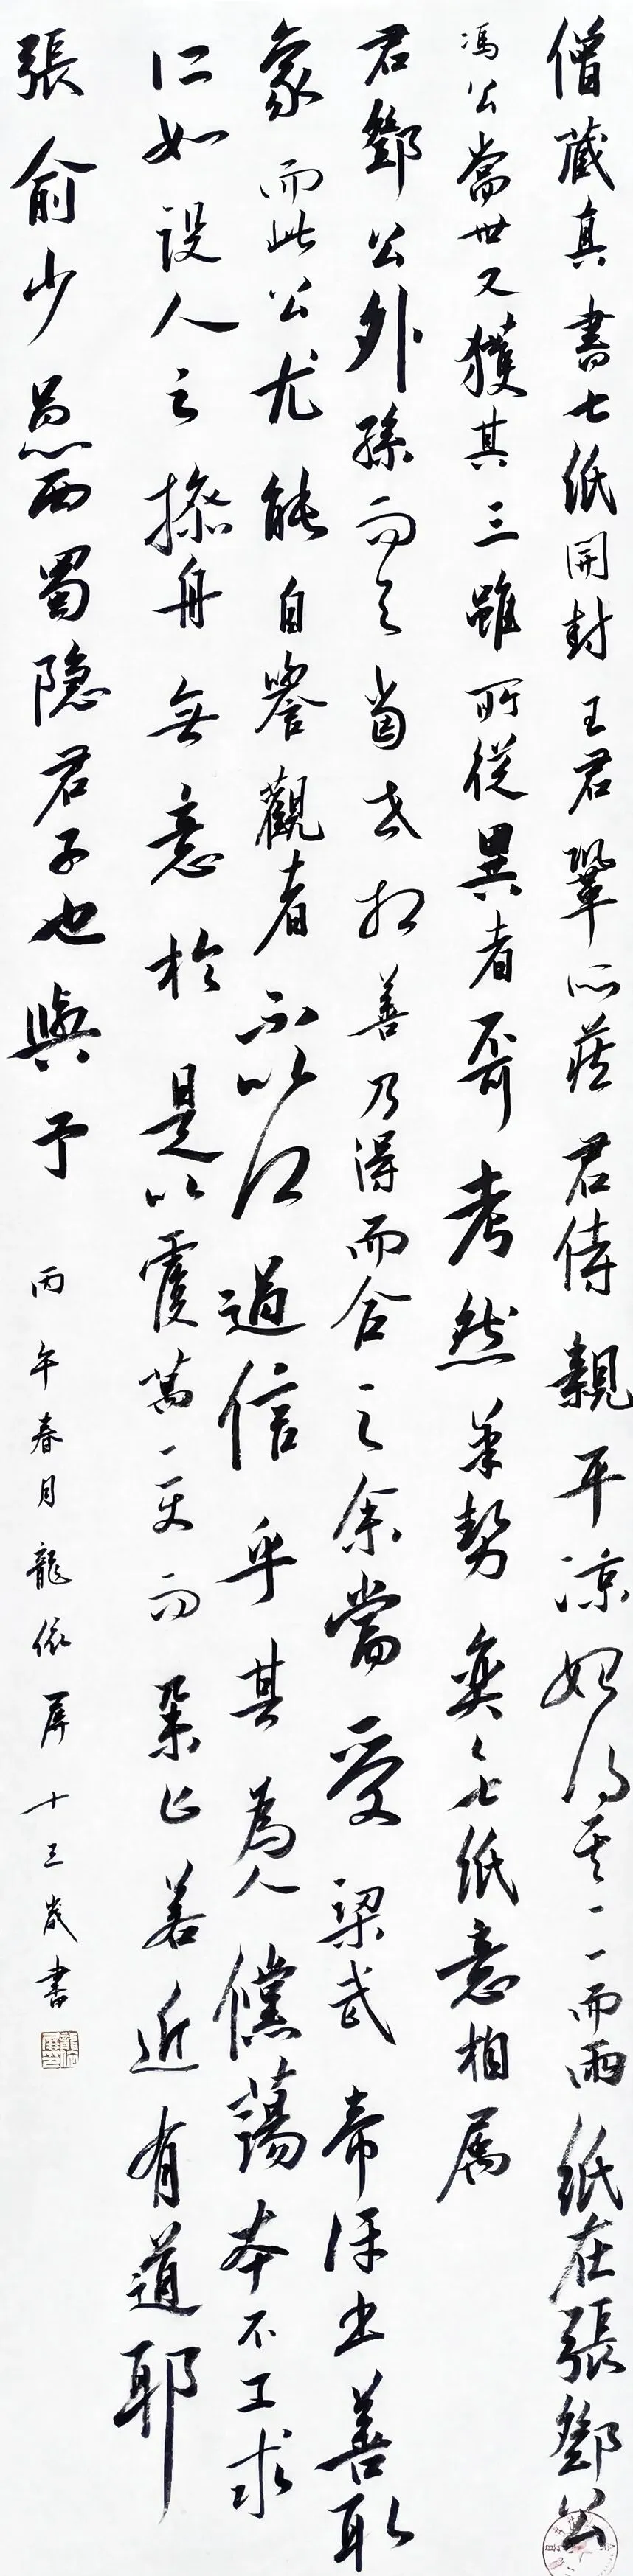 僧藏真書七紙開封王君鞏所藏君侍親平凉始得其一一而兩紙在張鄧公
馮公當世又獲其三雖所從異者哥考然筆勢奕奕七紙意相属
君鄧公外孫而与當世相善乃得而合之余嘗受梁武帝評書善取
象而此公尤能自譽觀者不以為過信乎其為人儻蕩本不工求
仁如設人之操舟無意於是以覆萬一変而舉止若近有道耶
張俞少愚西蜀隐君子也與予
丙午春月龍依屏十三歲書